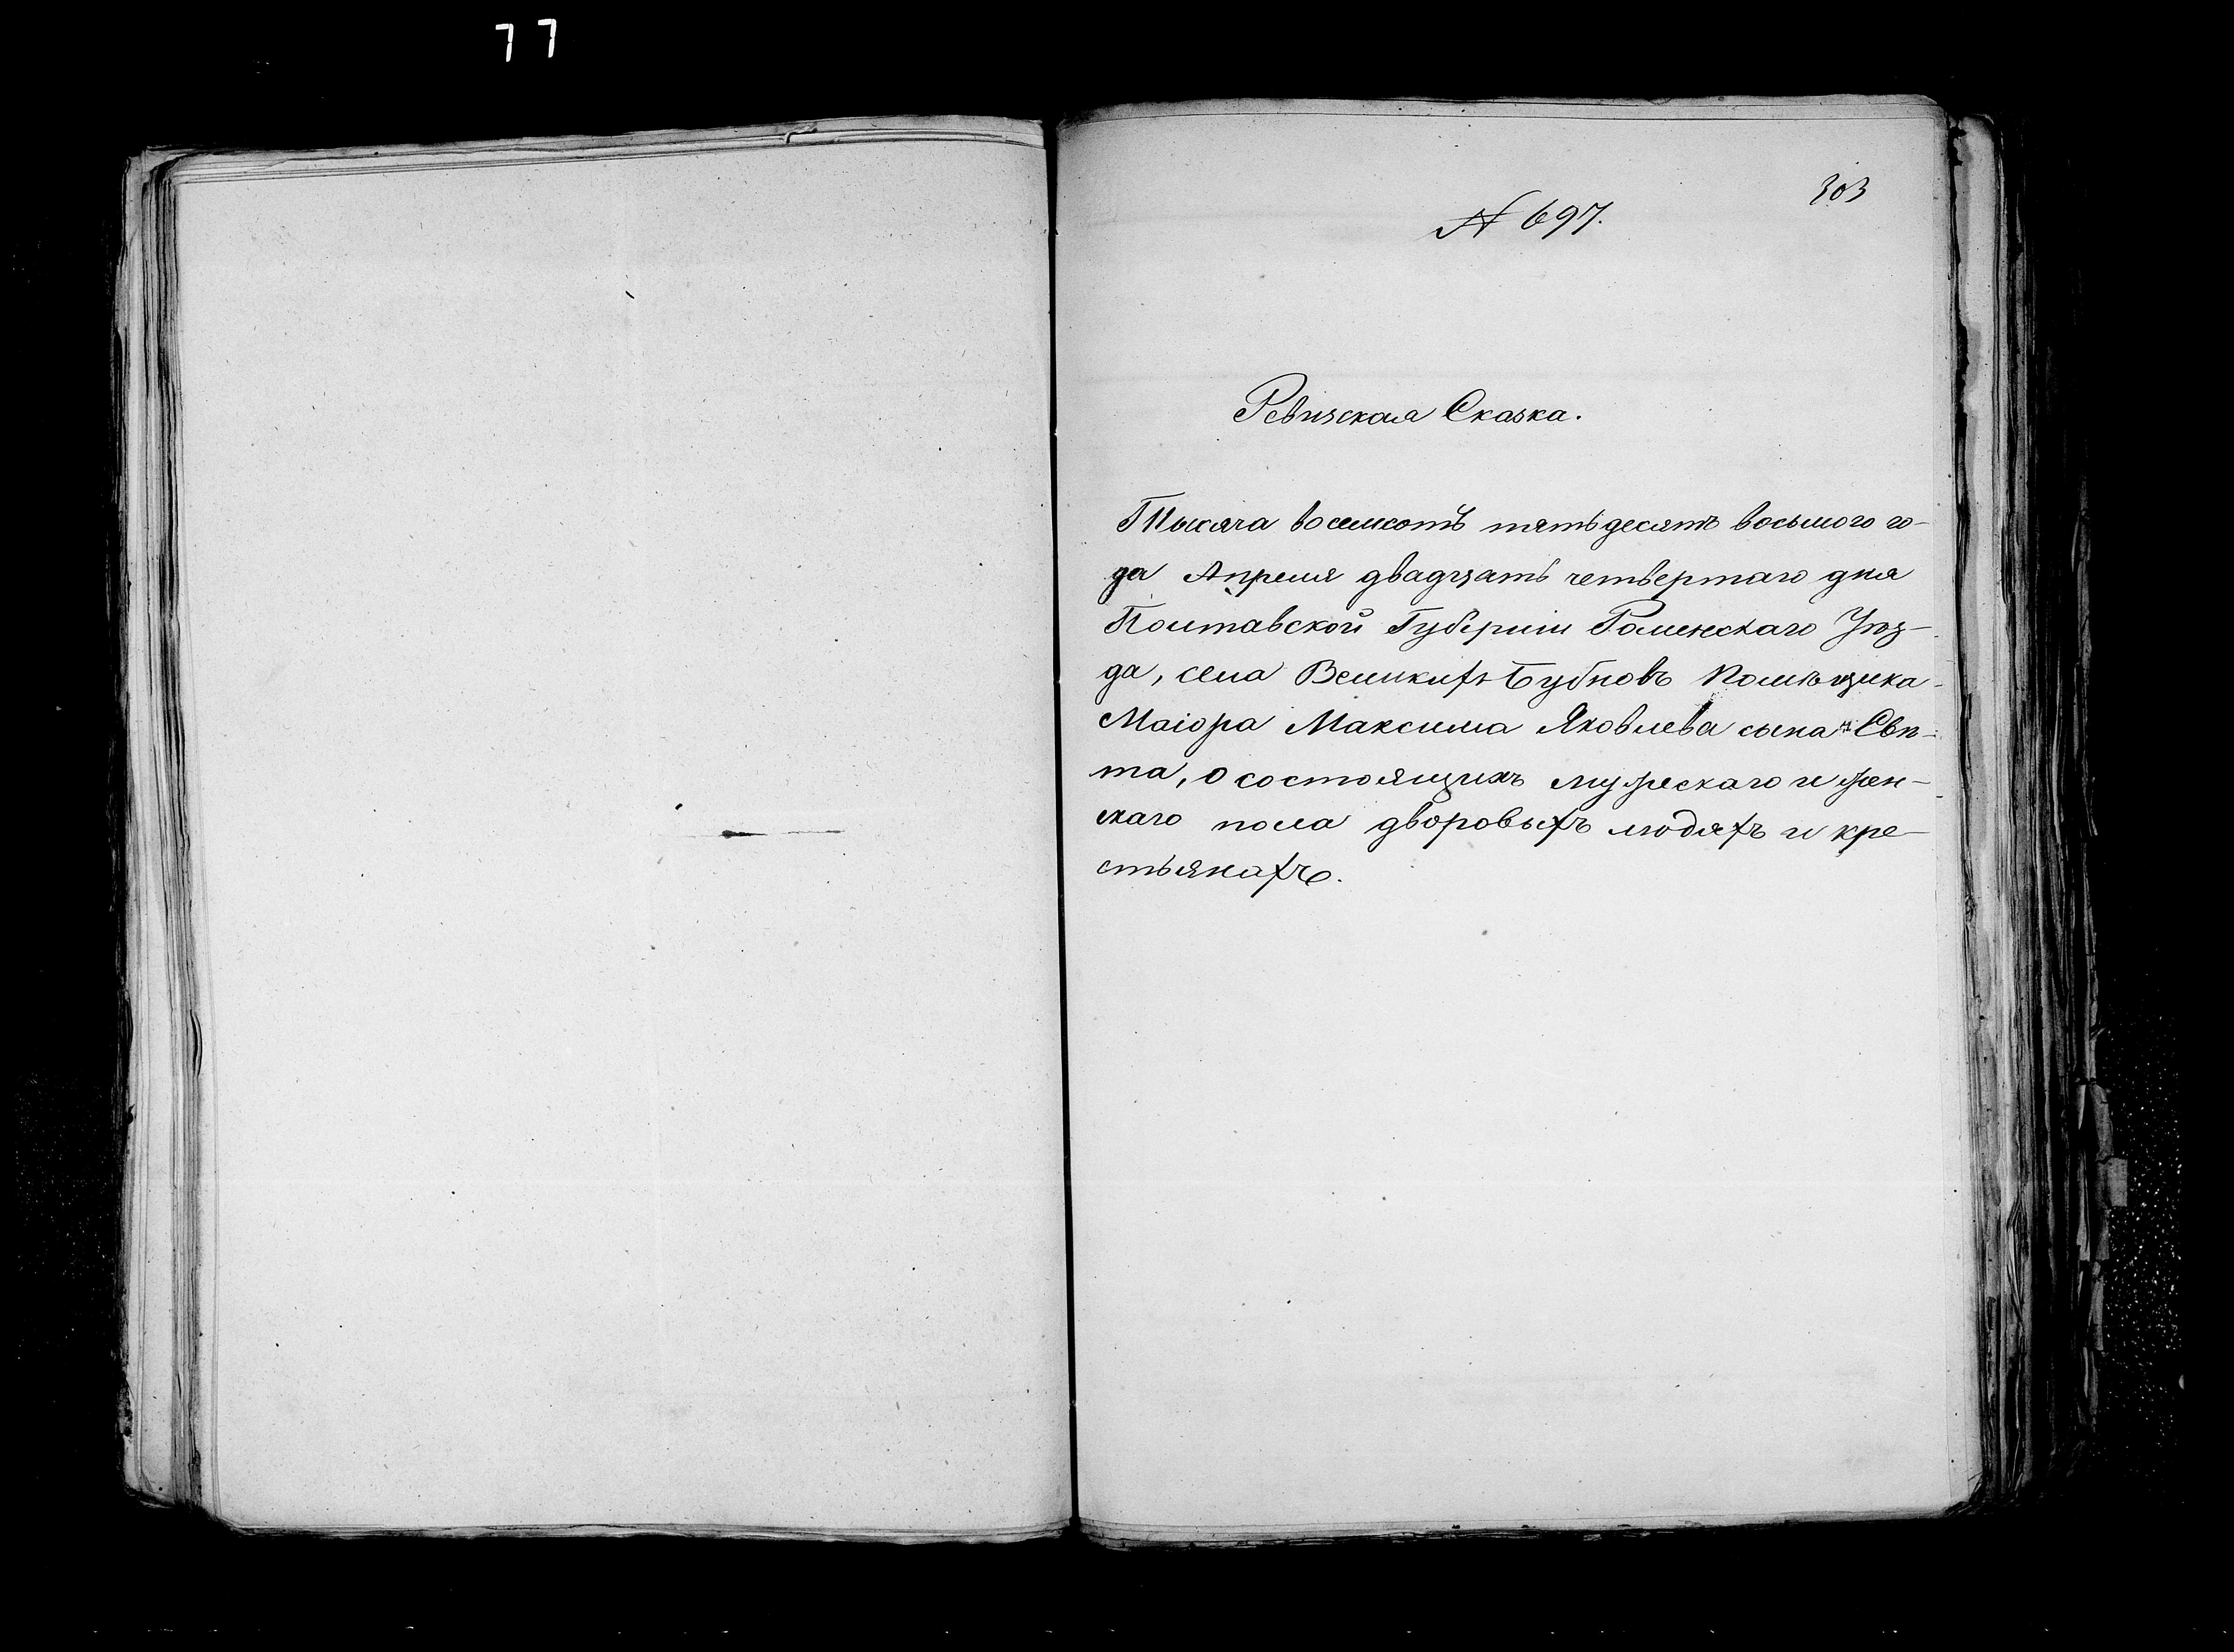 77
303
№ 697.
Ревизская Сказка.
Тысяча восемсотъ пятьдесятъ восьмого го-
да Апреля двадцать четвертаго дня
Полтавской Губерніи Роменскаго Уѣз-
да, села Великихъ Бубновъ Помѣщика
Маіора Максима Яковлева сына
та, о состоящихъ мужескаго и жен-
скаго пола дворовыхъ людяхъ и кре-
стьянахъ.